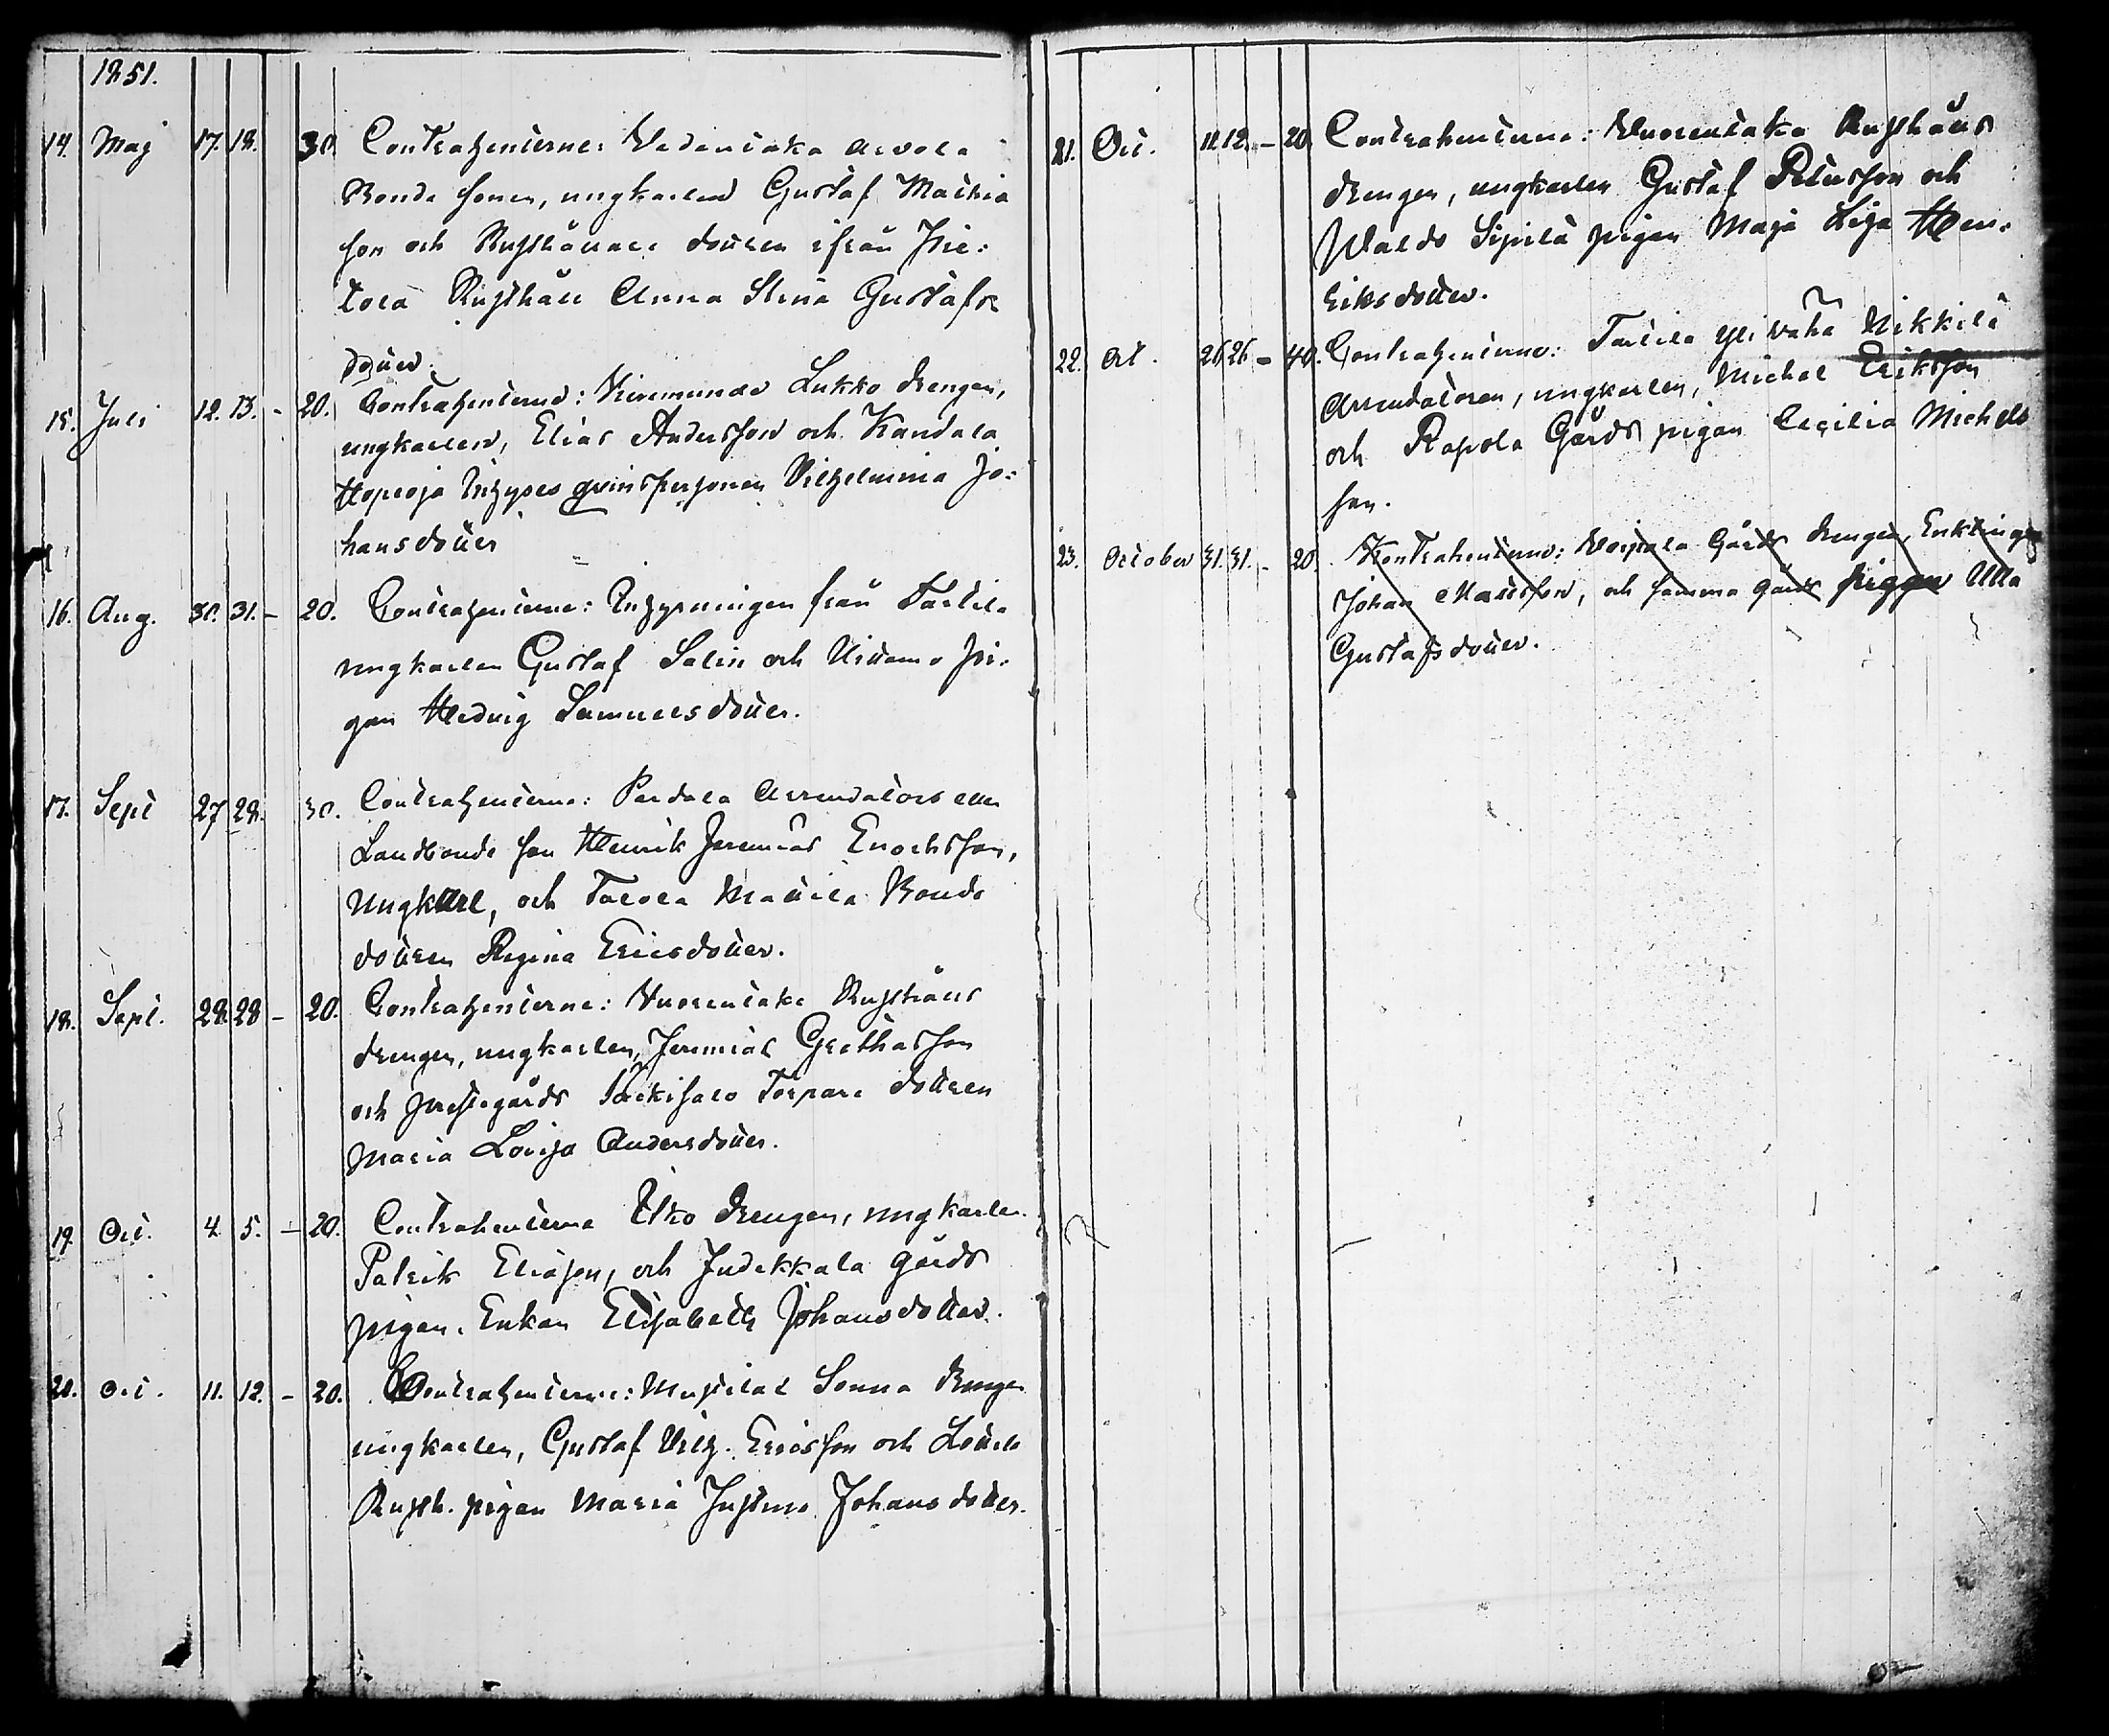 1851.
14. Maj 17. 18. 30. Contrahenterne: Vedentaka Arvola
Bonde sonen, ungkarlen Gustaf Mathia
son och Rusthållare dottren ifrån Pie:
tola Rusthåll Anna Stina Gustafs
dotter.
15. Juli 12. 13. - 20. Contrahenterne: Lukko drengen,
ungkarlen, Elias Andersson och Kandala
Inhyses qvinspersonen Vilhelmina Jo:
hansdotter
16. Aug. 30. 31. - 20. Contrahenterne: Inhysningen från Tarttila
ungkarlen Gustaf Salin och Uittamo Pi:
gan Hedvig Samuelsdotter.
17. Sept 27 28. 30. Contrahenterne: Perdala Arrendators eller
Landbonde son Henrik Jeremias Enochsson,
Ungkarl, och Talola Mattila Bonde
dottren Regina Ericsdotter.
18. Sept. 28. 28 - 20. Contrahenterne: Vuorentaka Rusthålls
drengen, ungkarlen, Jeremias Gerthasson
och prestegårds Torpare dottren
Maria Lovisa Andersdotter.
19. Oct. 4. 5. - 20. Contrahenterne Utko drengen, ungkarlen
Patrik Eliasson, och Judikkala gårds
pigan, Enkan Elisabeth Johansdotter.
20. Oct. 11. 12. - 20. Contrahenterne: Sonna drengen
ungkarlen, Gustaf Vilh. Ericsson och
Rusth. pigan Maria Justina Johansdotter.
21. Oct. 11. 12. - 20. Contrahenterne: Vuorentaka Rusthålls
drengen, ungkarlen Gustaf Petersson och
Uskila Sipilä pigan Maja Lisa Hen:
riksdotter.
22. Oct. 26 26 - 40. Contrahenterne: Tarttila yli vähä Nikkilä
Arrendatoren, ungkarlen, Michel Eriksson
och Rapola Gårds pigan Cecilia Michels
son.
23. October 31. 31. - 20. Kontrahenterne: Voipala Gårds drengen, Enklingen
Johan Mattsson, och samma gårds pigan Ulla
Gustafsdotter.